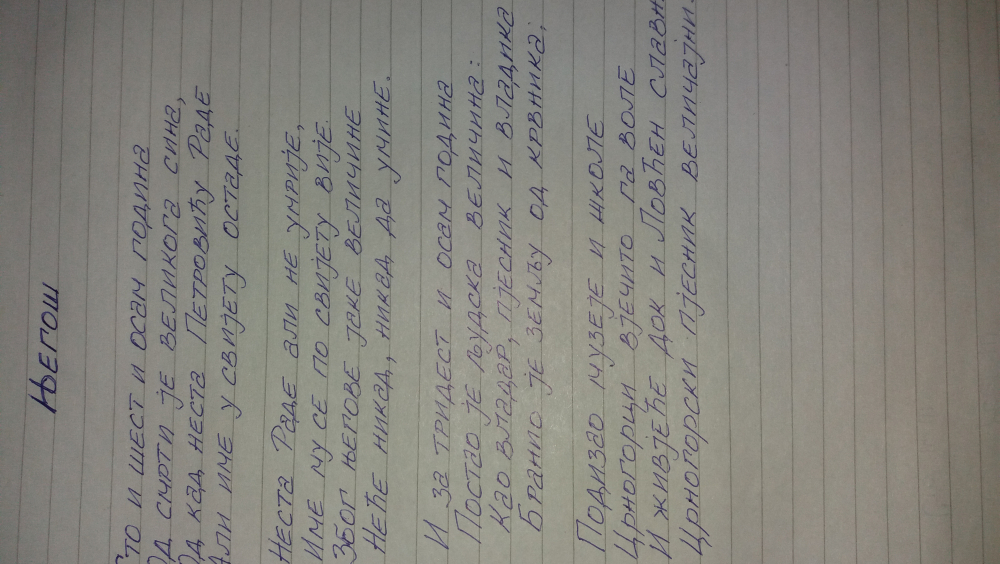 Његош
Сто и шест и осам година
Од смрти је великога сина,
Од кад неста Петровићу Раде
Али име у свијету остаде.
Неста Раде али не умрије,
Име му се по свијету вије.
Због његове јаке величине
Неће никад, никад да учине.
И за тридест и осам година
Постао је људска величина:
Као владар, пјесник и владика
Бранио је земљу од крвника;
Подизао музеје и школе
Црногорци вјечито га воле
И живјеће док и Ловћен
Црногорски пјесник величајни.